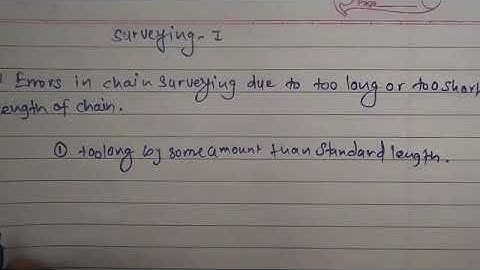 Surveying-I
Errors in chain surveying due to too long or too short
length of chain.
① too long by some amount than standard length.